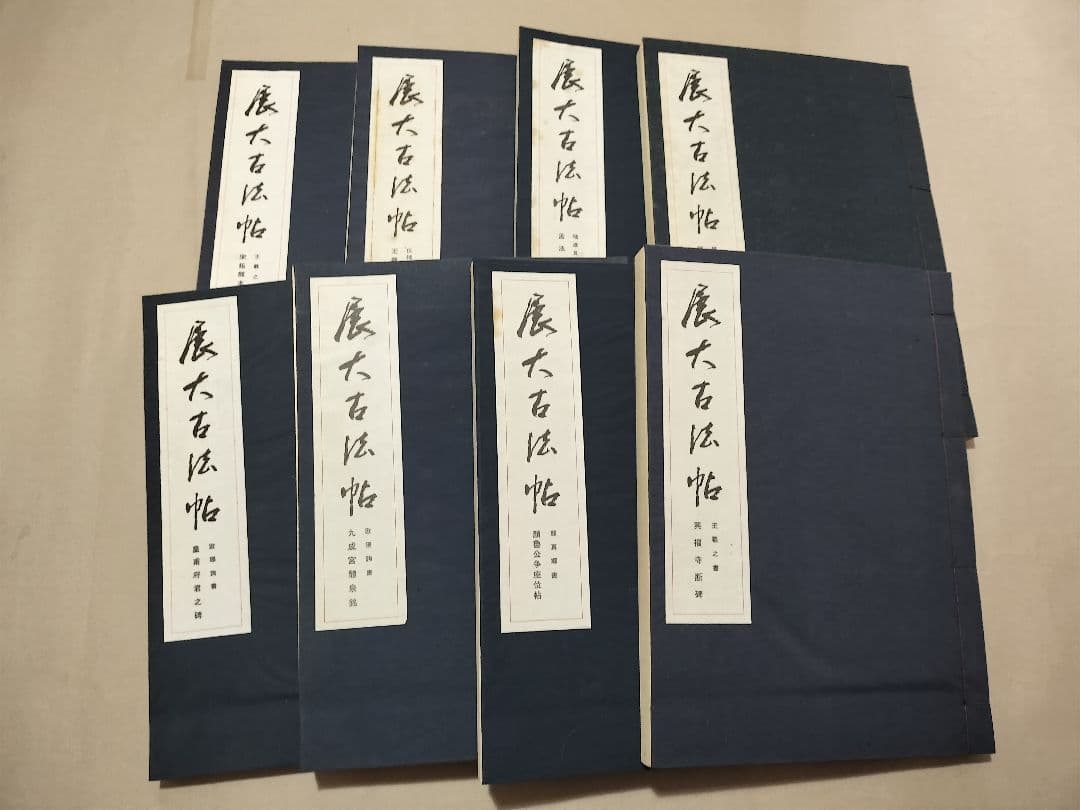 展大古法帖
王羲之
展大古法帖
展大古法帖
孟法
展大古法帖
展大古法帖
歐陽詢書
皇甫府君之碑
展大古法帖
歐陽詢書
九成宮醴泉銘
展大古法帖
顔真卿書
顔魯公争座位帖
展大古法帖
王羲之書
興福寺断碑